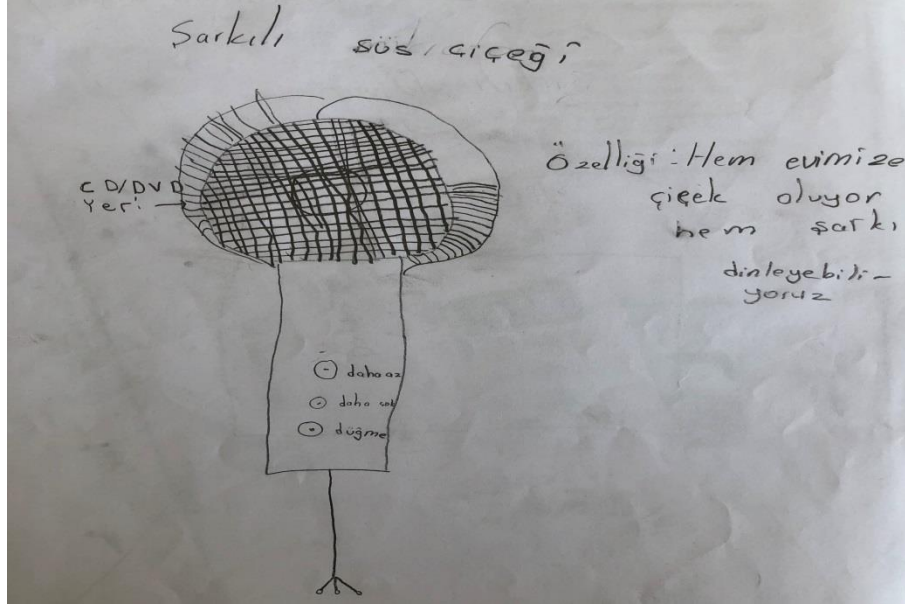 Şarkılı süs çiçeği
CD/DVD
Yeri
Özelliği: Hem evimize
çiçek oluyor
hem şarkı
dinleyebili-
yoruz
daha az
daha
düğme